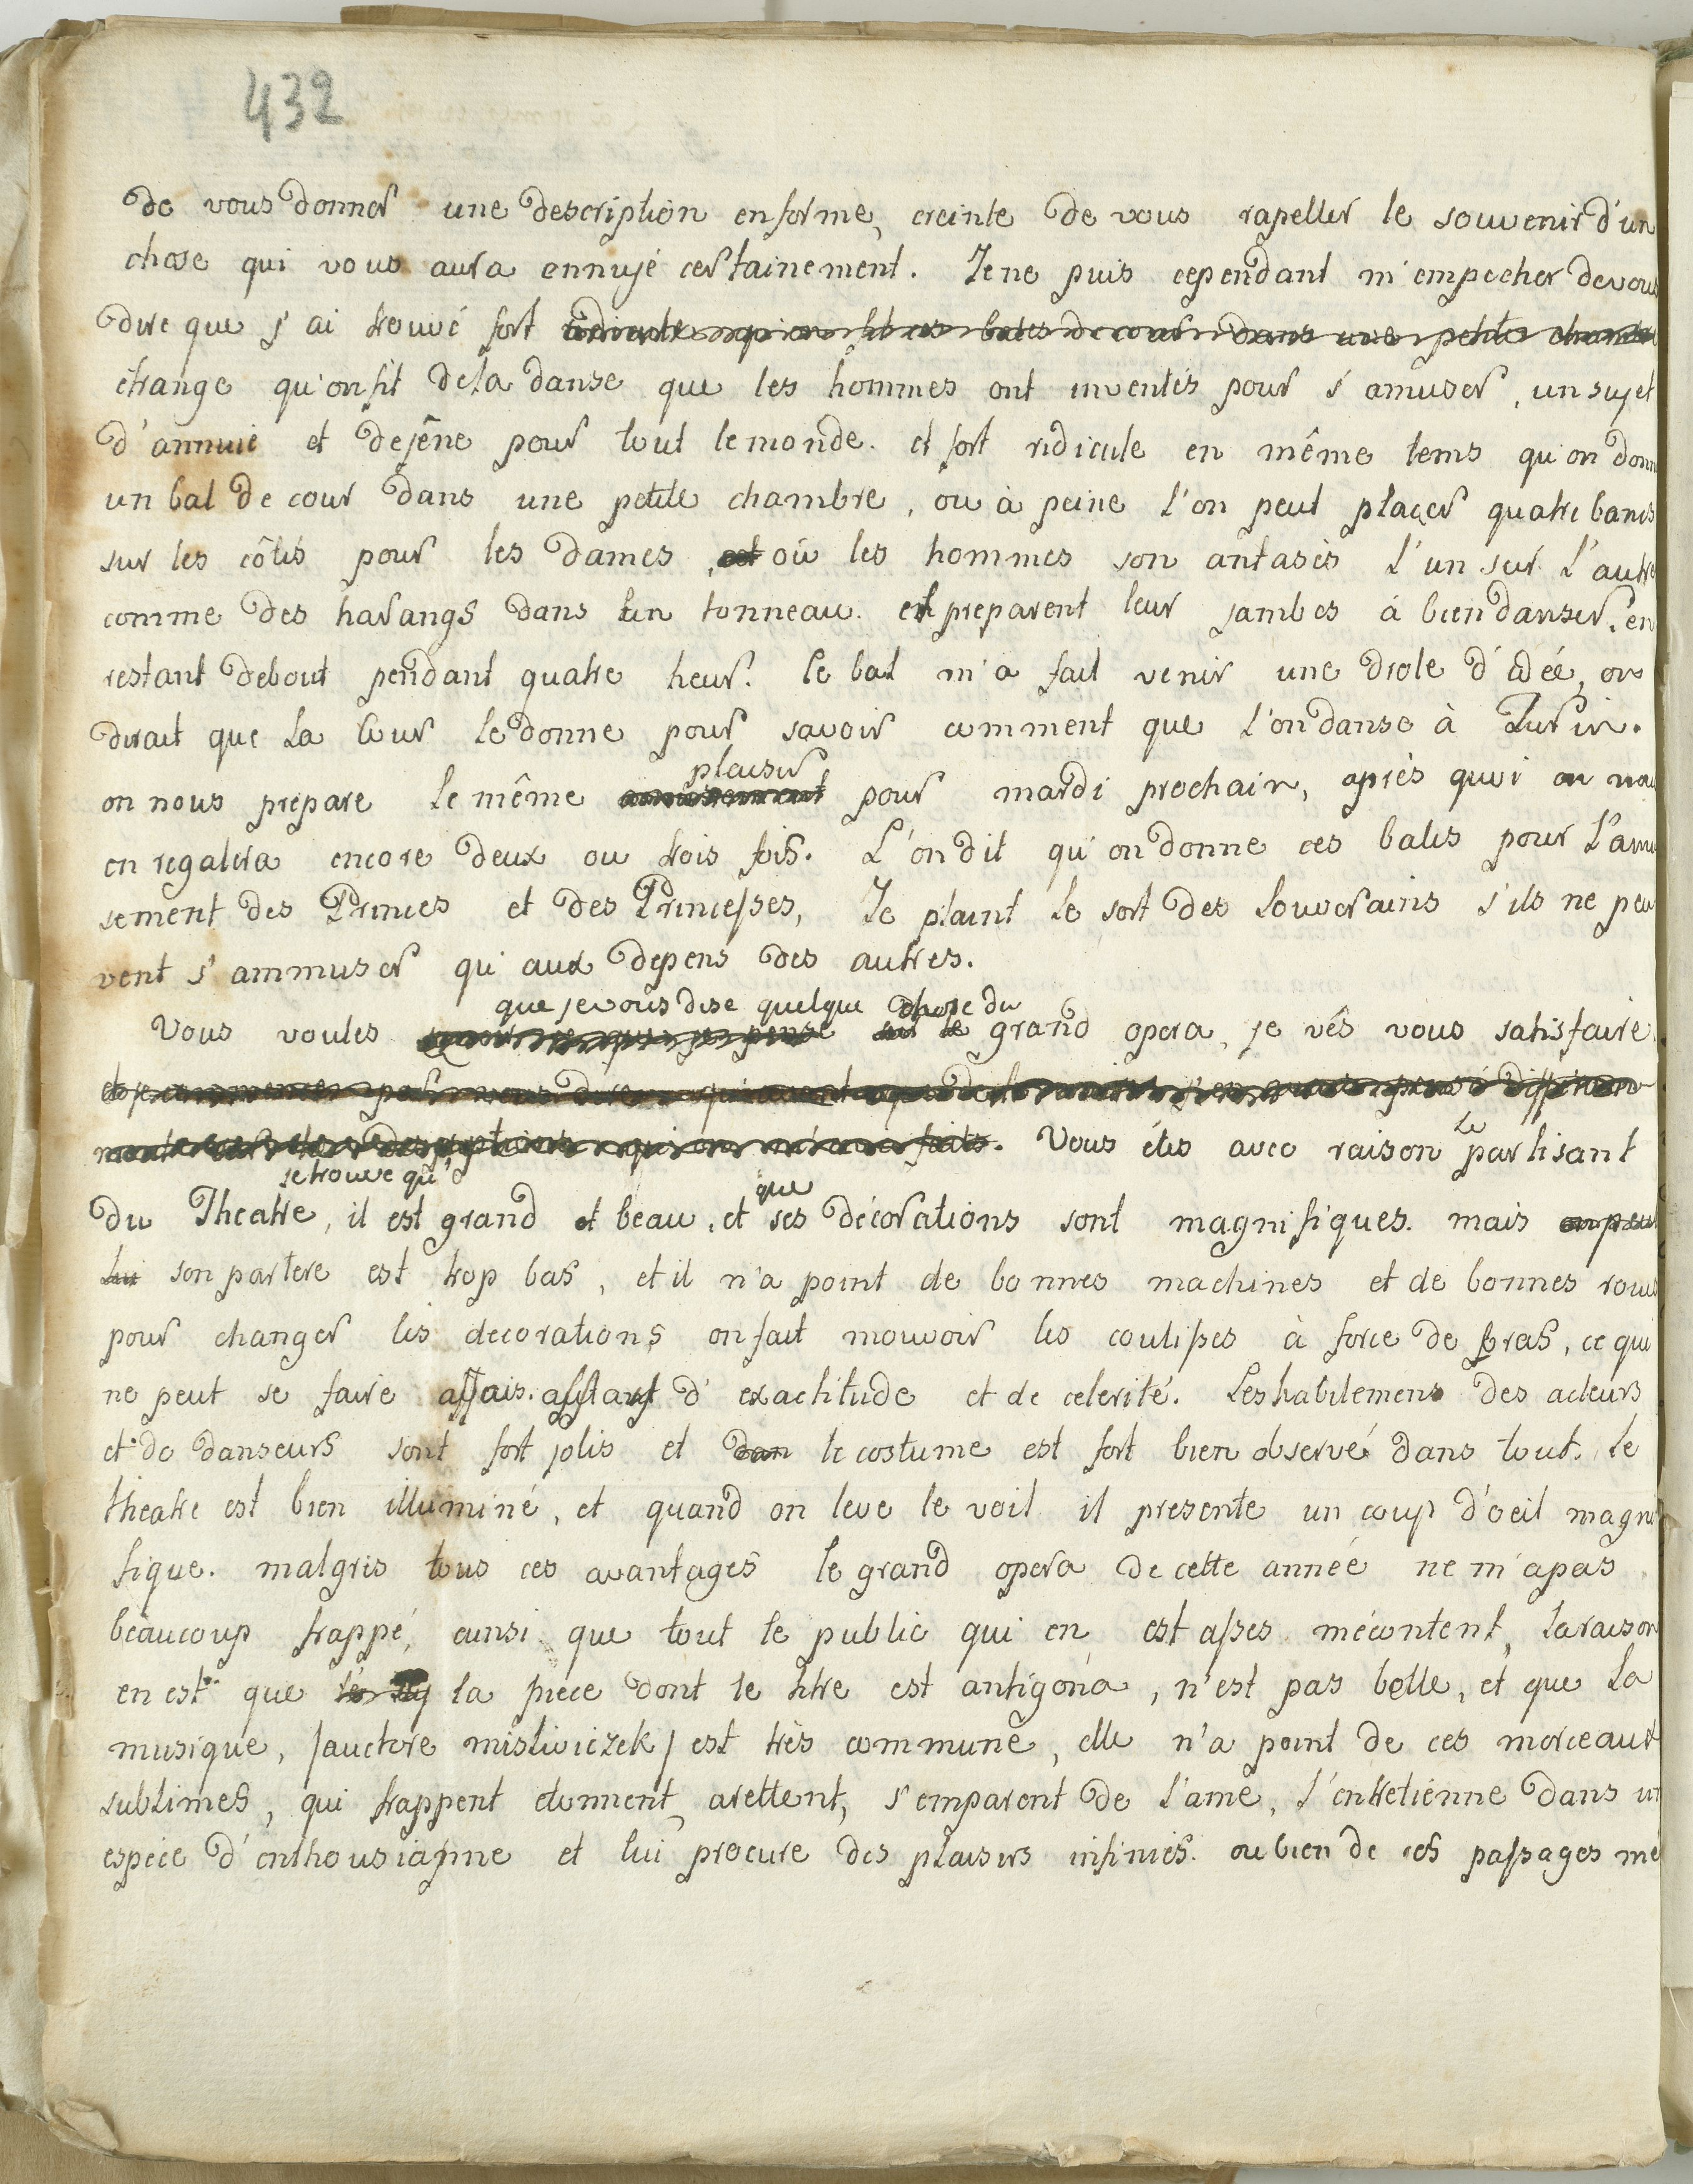 432
de vous donner une description en forme, creinte de vous rapeller le souvenir d'un
chose qui vous aura ennujé certainement. Je ne puis cependant m'empecher de vous
dire que j'ai trouvé fort ridicule qu'on fit ces bales de cour dans une petite chambre
etrange qu'on fit de la danse que les hommes ont inventés pour s'amuser, un sujet
d'annuie et de jêne pour tout le monde. et fort ridicule en même tems qu'on donn
un bal de cour dans une petite chambre, ou à peine l'on peut plaçer quatre bancs
sur les côtés pour les dames, et où les hommes son antasés l'un sur l'autre
comme des harangs dans un tonneau. et preparent leur jambes à bien danser, en
restant debout pendant quatre heur. le bal m'a fait venir une drole d'idée, on
dirait que la Cour le donne pour savoir comment que l'on danse à Turin.
plaisir
on nous prepare le même amusement pour mardi prochain, après quoi on nou
en regalera encore deux ou trois fois. L'on dit qu'on donne ces bales pour l'amu
sement des Princes et des Princesses, Je plaint le sort des Souverains s'ils ne peu
vent s'ammuser qu'aux depens des autres.
que je vous dise quelque chose du
Vous voules sur le grand opera, je vês vous satisfaire
Vous étes avec raison le partisant
se trouve qu' que
du Theatre, il est grand et beau, et ses décorations sont magnifiques. mais on peut
lui son partere est trop bas, et il n'a point de bonnes machines et de bonnes roues
pour changer les decorations on fait mouvoir les coulisses à force de bras, ce qui
ne peut se faire d'exactitude et de celerité. Les habilemens des acteurs
et de danseurs sont fort jolis et dan le costume est fort bien observé dans tout. Le
theatre est bien illuminé, et quand on leve le voil il presente un coup d'oeil magni
fique. malgrés tous ces avantages le grand opera de cette année ne m'a pas
beaucoup frappé, ainsi que tout le public qui en est asses mécontent, la raison
en est que la piece dont le titre est antigona, n'est pas belle, et que la
musique, /auctore misliwiczek/ est très commune, elle n'a point de ces morceaux
sublimes, qui frappent etonnent, arettent, s'emparent de l'ame, l'entretienne dans un
espece d'enthousiasme et lui procure des plaisirs infinies. ou bien de ces passages me